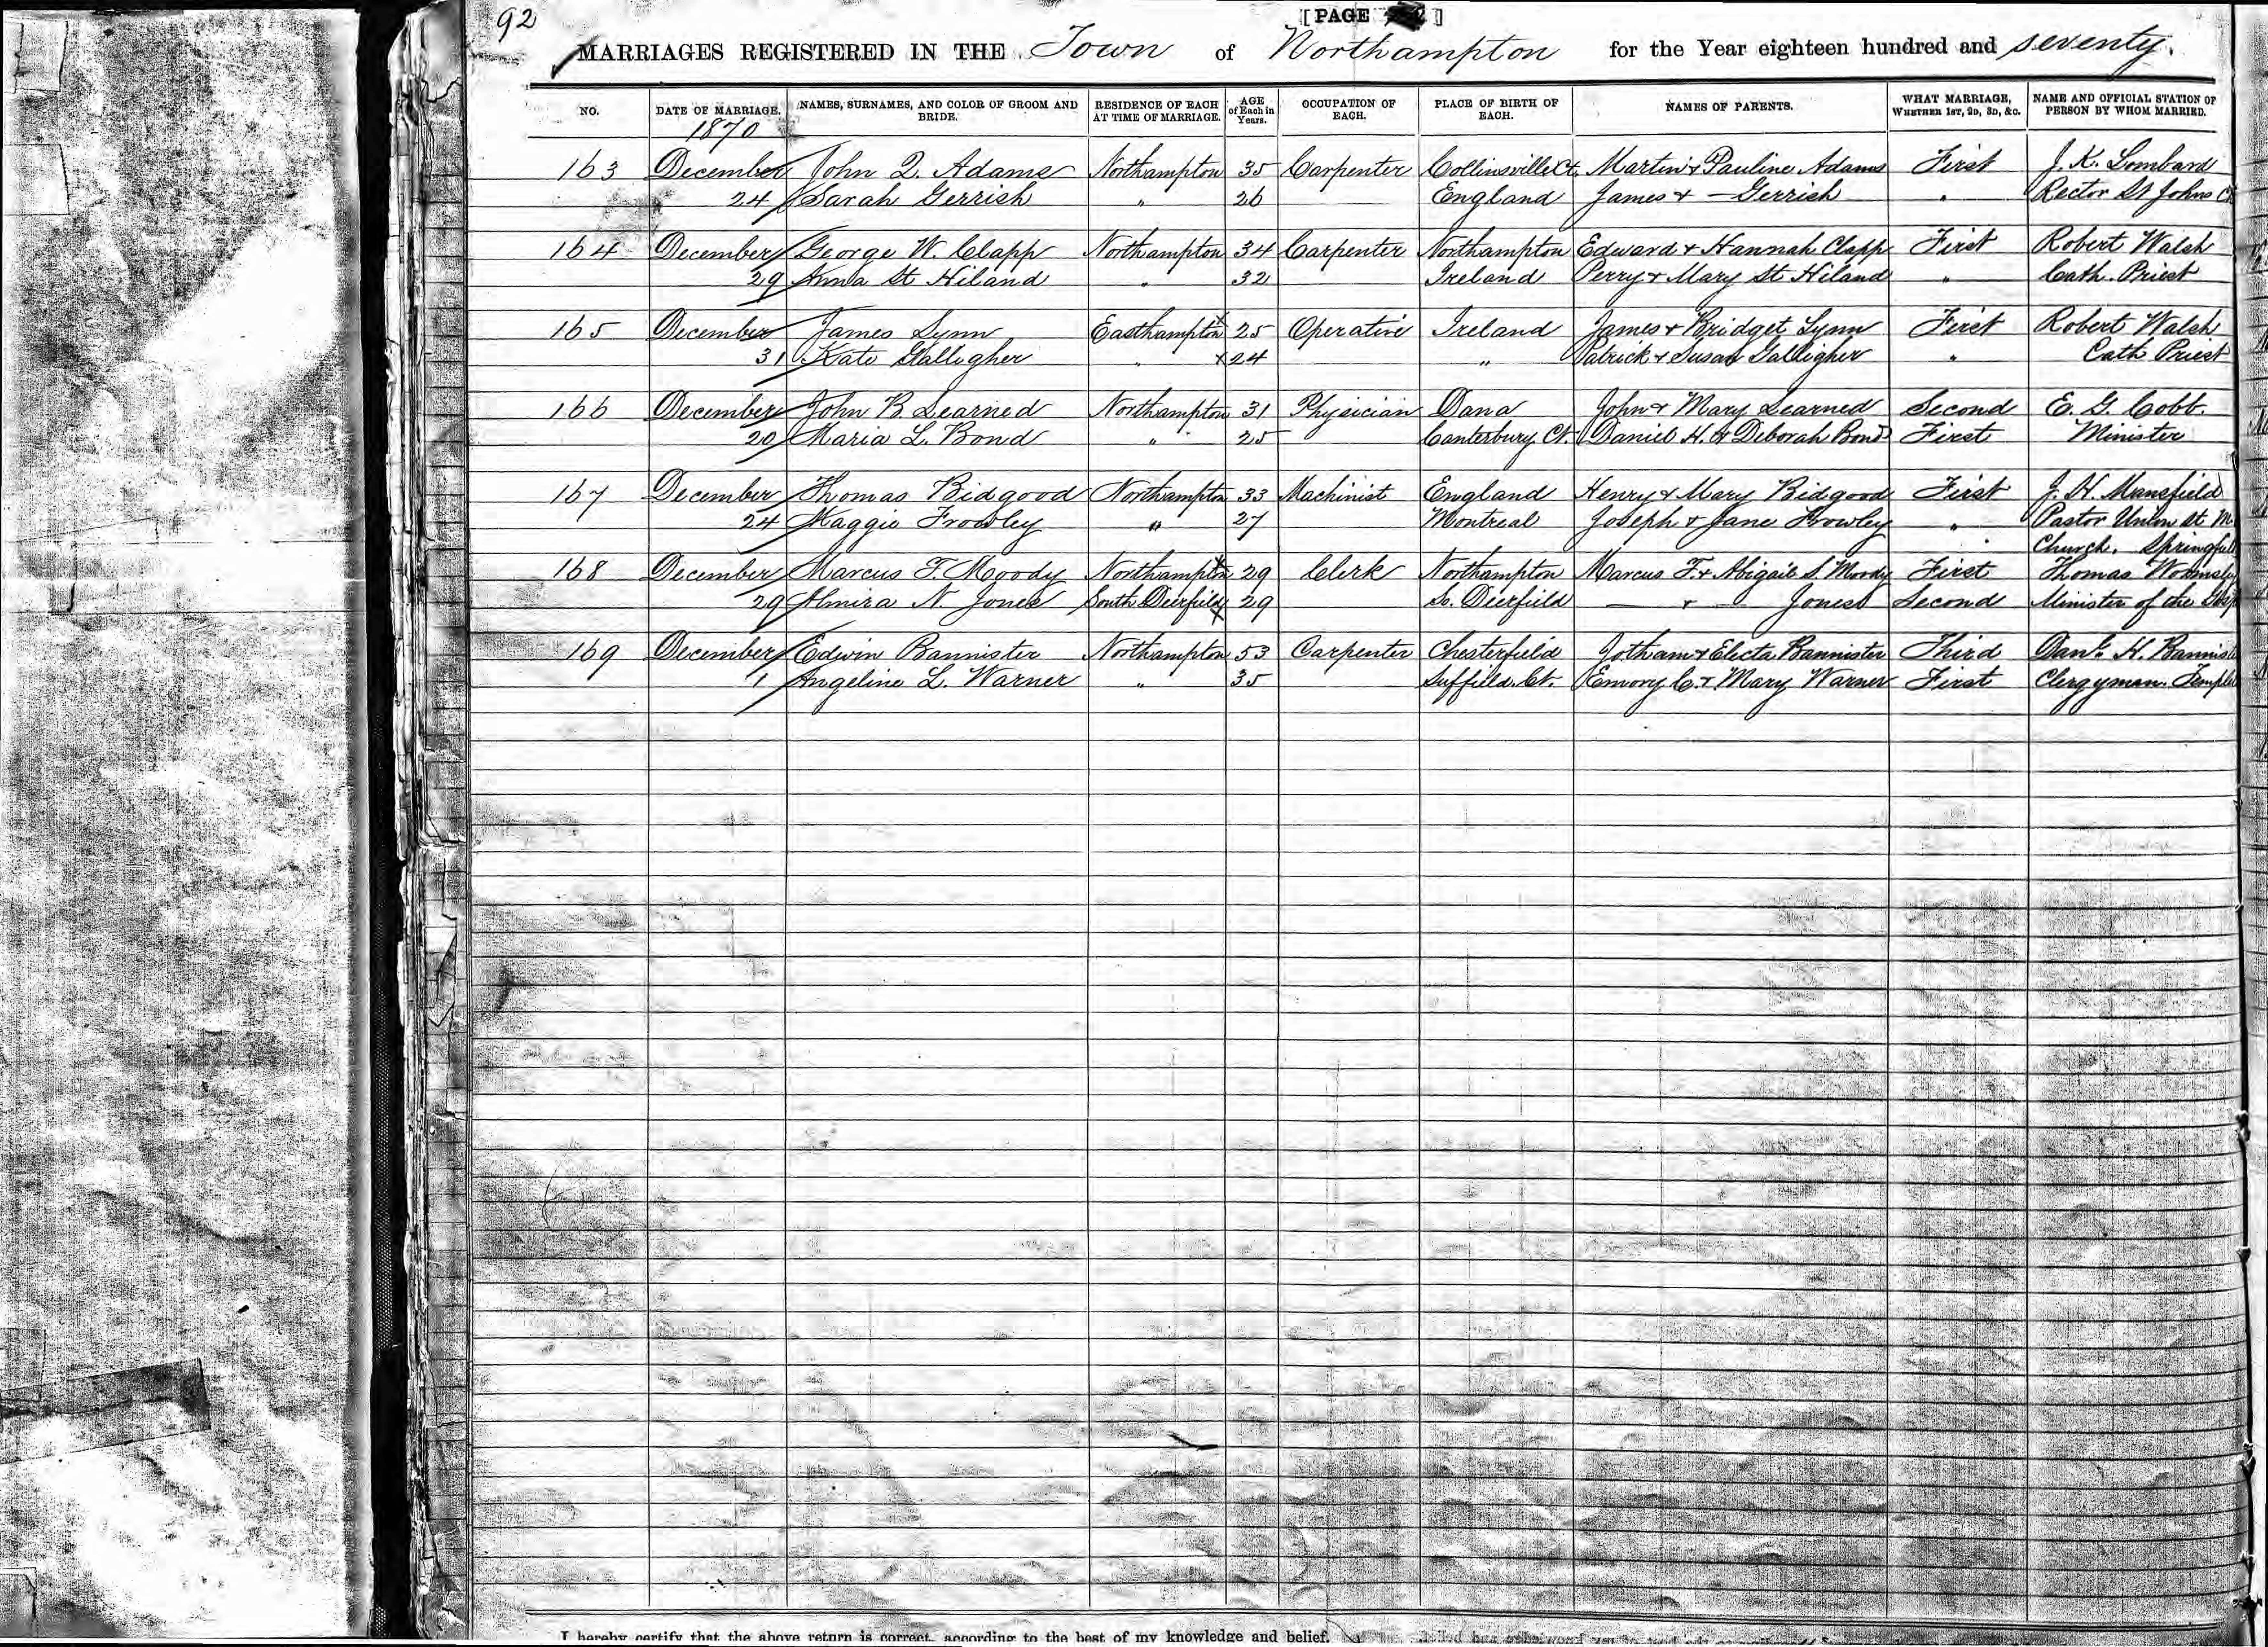 92
[PAGE 2]
MARRIAGES REGISTERED IN THE Town of Northampton for the Year eighteen hundred and seventy.
NO. DATE OF MARRIAGE. NAMES, SURNAMES, AND COLOR OF GROOM AND BRIDE. RESIDENCE OF EACH AT TIME OF MARRIAGE. AGE of Each in Years. OCCUPATION OF EACH. PLACE OF BIRTH OF EACH. NAMES OF PARENTS. WHAT MARRIAGE, WHETHER 1ST, 2D, 3D, &C. NAME AND OFFICIAL STATION OF PERSON BY WHOM MARRIED.
1870
163 December John Q. Adams Northampton 35 Carpenter Collinsville Ct. Martin & Pauline Adams First J. K. Lombard
24 Sarah Gerrish " 26 England James & — Gerrish " Rector St Johns C
164 December George W. Clapp Northampton 34 Carpenter Northampton Edward & Hannah Clapp First Robert Walsh
29 Anna St Hiland " 32 Ireland Perry & Mary St Hiland " Cath. Priest
165 December James Lynn Easthampton x 25 Operative Ireland James & Bridget Lynn First Robert Walsh
31 Kate Gallegher " x 24 " Patrick & Susan Galligher " Cath Priest
166 December John B Learned Northampton 31 Physician Dana John & Mary Learned Second E. G. Cobb.
20 Maria L. Bond " 25 Canterbury Ct. Daniel H. & Deborah Bond First Minister
167 December Thomas Bidgood Northampton 33 Machinist England Henry & Mary Bidgood First J. H. Mansfield
24 Maggie Frowley " 27 Montreal Joseph & Jane Frowley " Pastor Union St M
Church. Springfiel
168 December Marcus T. Moody Northampton x 29 Clerk Northampton Marcus T. & Abigail S. Moody First Thomas Wormsley
29 Almira N. Jones South Deerfield x 29 So. Deerfield — & — Jones Second Minister of the Gosp
169 December Edwin Bannister Northampton 53 Carpenter Chesterfield Jotham & Electa Bannister Third Danl. H. Bannist
1 Angeline L. Warner " 35 Suffield. Ct. Emory C. & Mary Warner First Clergyman. Temple
I hereby certify that the above return is correct, according to the best of my knowledge and belief.